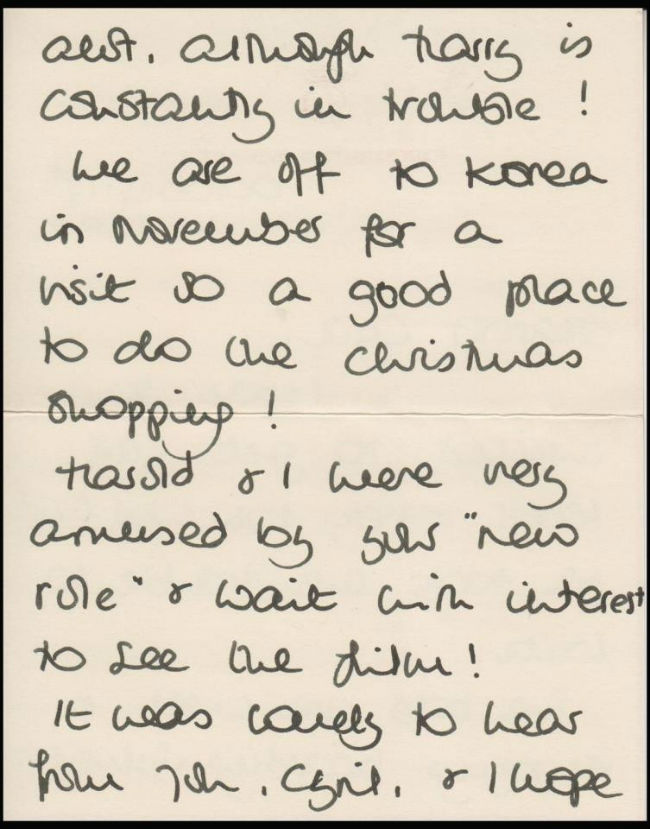 art. although Harry is
constantly in trouble !
We are off to Korea
in November for a
visit so a good place
to do the Christmas
shopping !
Harold & I were very
amused by your "new
role" & wait with interest
to see the film !
It was lovely to hear
from you, Cyril, & I hope